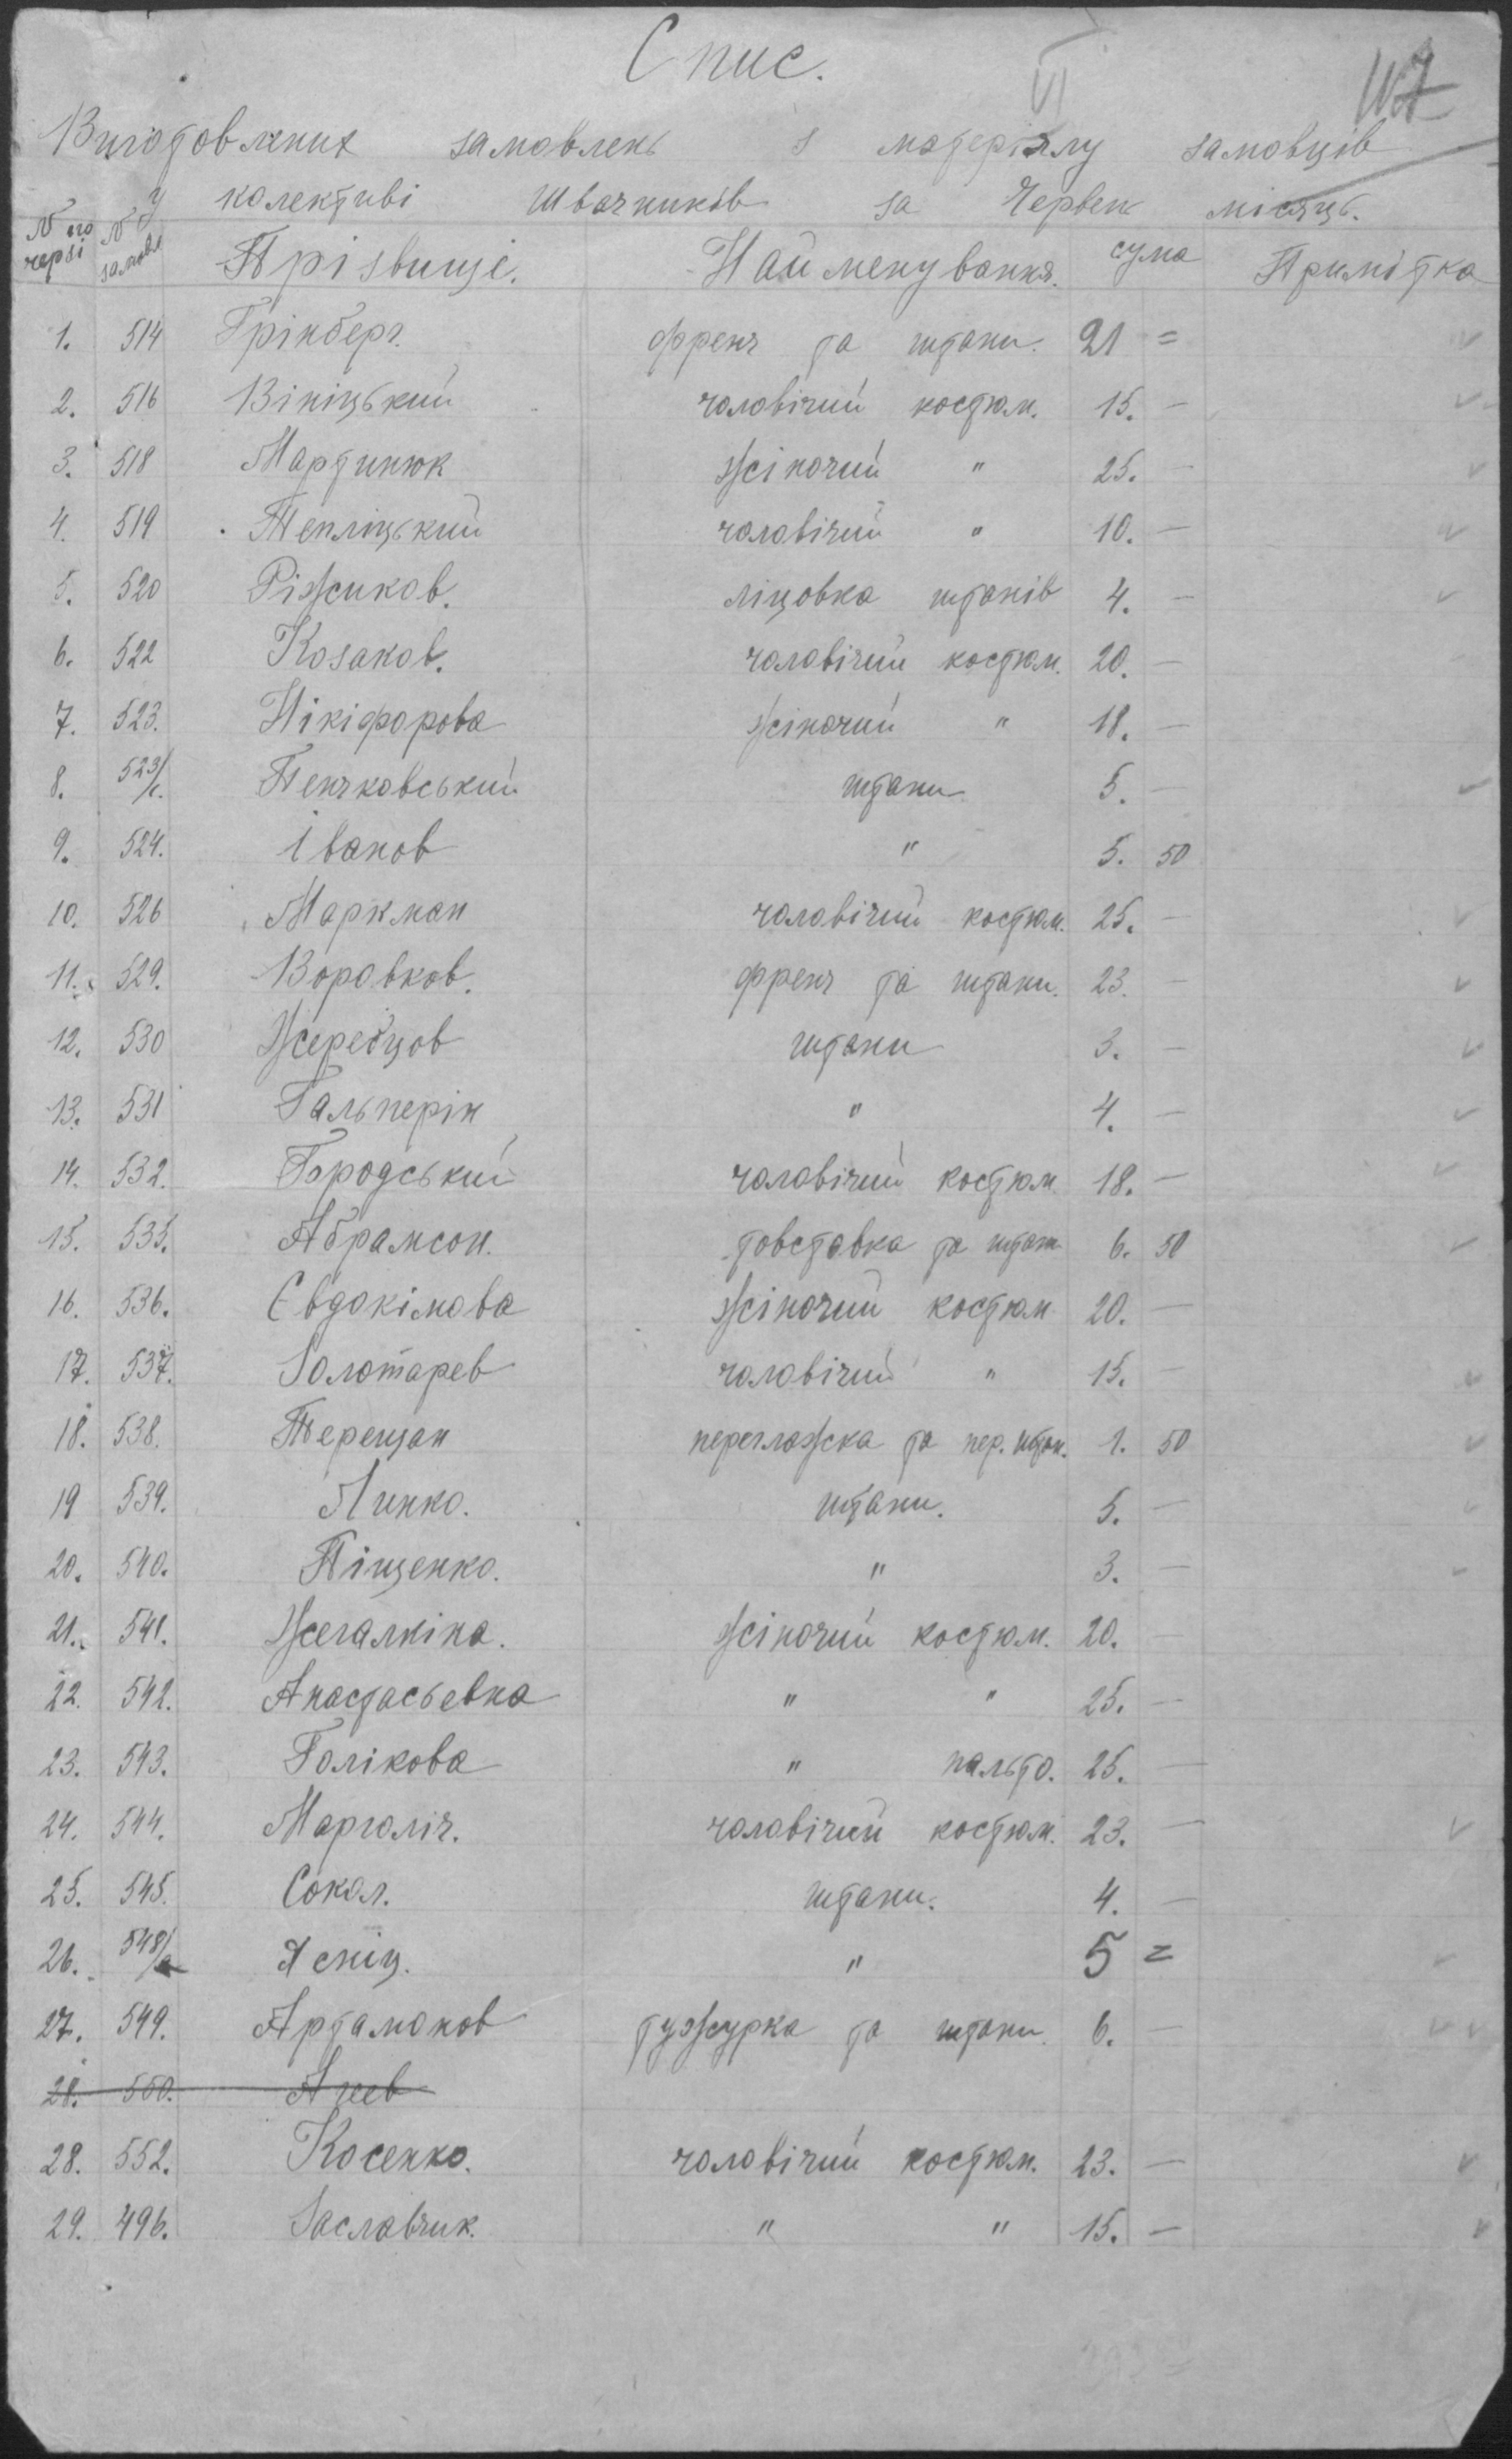 Спис.
VI
117
Виготовлених замовлень з матеріялу замовців
у колективі Швачників за Червень місяць.
№ по черзі № замовл Прізвище. Найменування. сума Примітка
1. 514 Грінберг. френч та штани. 21 =
2. 516 Вініцький чоловічий костюм. 15. —
3. 518 Мартинюк жіночий " 25. —
4. 519 Тепліцький чоловічий " 10. —
5. 520 Ріжиков. ліцовка штанів 4. —
6. 522 Козаков. чоловічий костюм. 20. —
7. 523. Нікіфорова жіночий " 18. —
8. 523/ Пенчковський штани 5. —
9. 524. Іванов " 5. 50
10. 526 Маркман чоловічий костюм. 25. —
11. 529. Воровков. френч та штани. 23. —
12. 530 Жеребцов штани 3. —
13. 531 Гальперін " 4. —
14. 532. Городський чоловічий костюм 18. —
15. 535. Абрамсон. товставка та штан 6. 50
16. 536. Євдокімова жіночий костюм 20. —
17. 537. Золотарев чоловічий " 15. —
18. 538. Терещан перглажка та пер. штан. 1. 50
19 539. Линко. штани. 5. —
20. 540. Піщенко. " 3. —
21. 541. Жегалкіна. жіночий костюм. 20. —
22. 542. Анастасьевна " " 25. —
23. 543. Голікова " пальто. 25. —
24. 544. Марголіч. чоловічий костюм. 23. —
25. 545. Сокол. штани. 4. —
26. 548/а Ясніц. " 5 =
27. 549. Артамонов тужурка та штани. 6. —
28. 550.
28. 552. Косенко. чоловічий костюм. 23. —
29. 496. Заславчик. " " 15. —